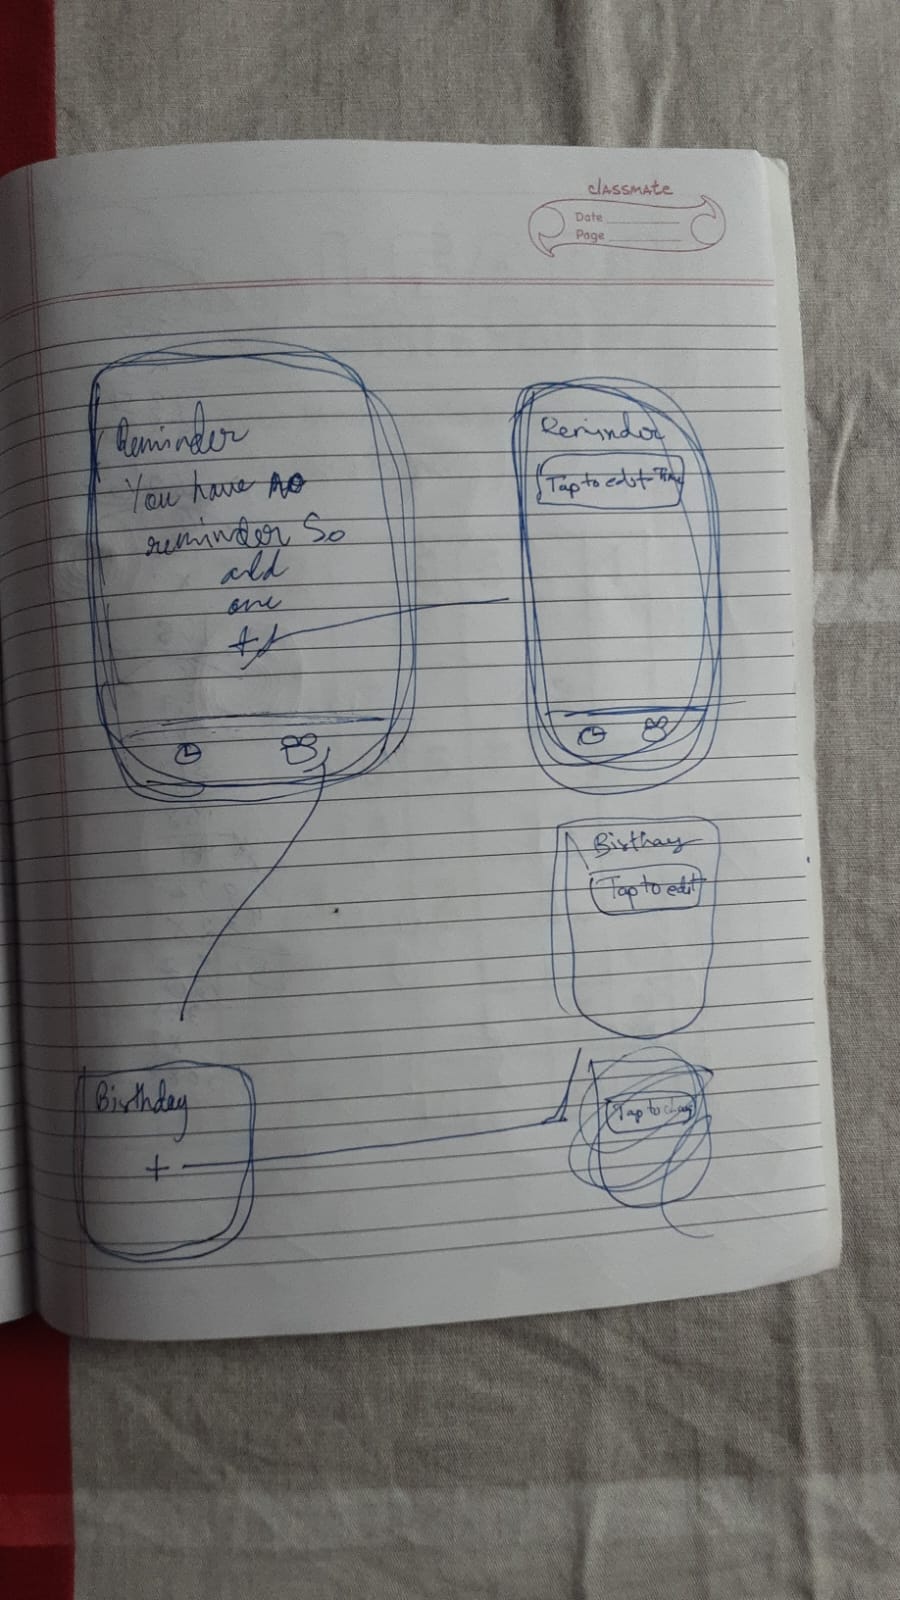 classmate
Date
Page
Reminder
You have no
reminder So
add
one
+
Reminder
Tap to edit Time
Birthay
Tap to edit
Birthday
+
Tap to